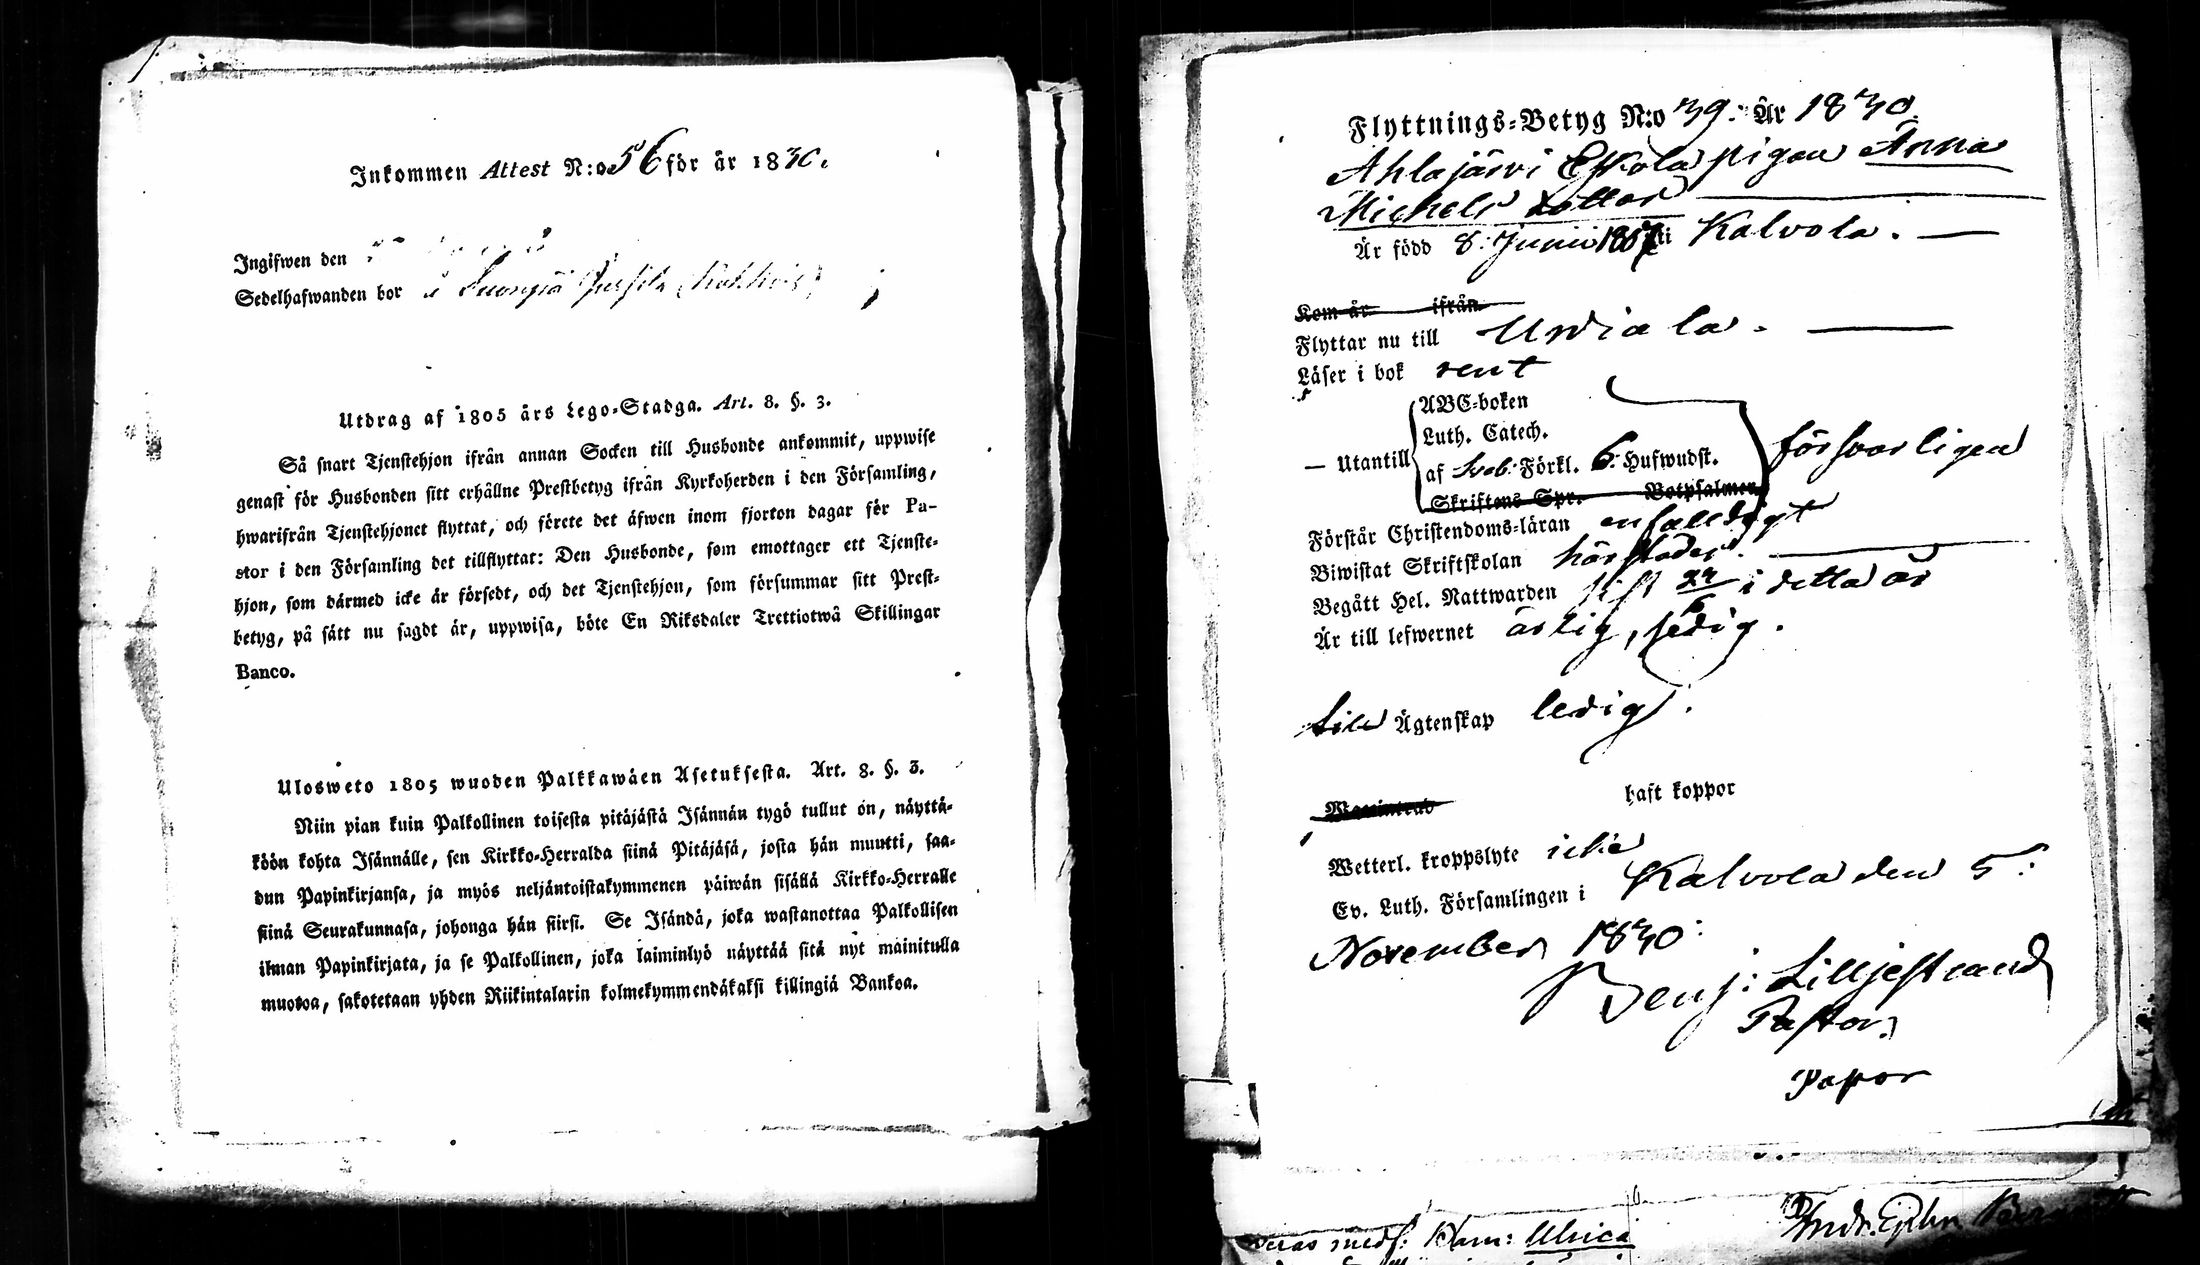 Inkommen Attest N:o 56 för år 1830.
Ingifwen den
Sedelhafwanden bor
Utdrag af 1805 års Lego-Stadga. Art. 8. §. 3.
Så snart Tjenstehjon ifrån annan Socken till Husbonde ankommit, uppwise
genast för Husbonden sitt erhållne Prestbetyg ifrån Kyrkoherden i den Församling,
hwarifrån Tjenstehjonet flyttat, och förete det äfwen inom fjorton dagar för Pa-
stor i den Församling det tillflyttat: Den Husbonde, som emottager ett Tjenste-
hjon, som därmed icke är försedt, och det Tjenstehjon, som försummar sitt Prest-
betyg, på sätt nu sagdt är, uppwisa, böte En Riksdaler Trettiotwå Skillingar
Banco.
Ulosweto 1805 wuoden Palkkawäen Asetuksesta. Art. 8. §. 3.
Niin pian kuin Palkollinen toisesta pitäjästä Isännän tygö tullut on, näyttä-
köön kohta Isännälle, sen Kirkko-Herralda siinä Pitäjäsä, josta hän muutti, saa-
dun Papinkirjansa, ja myös neljäntoistakymmenen päiwän sisällä Kirkko-Herralle
siinä Seurakunnasa, johonga hän siirsi. Se Isändä, joka wastanottaa Palkollisen
ilman Papinkirjata, ja se Palkollinen, joka laiminlyö näyttää sitä nyt mainitulla
muotoa, sakotetaan yhden Riikintalarin kolmekymmendäkaksi killingiä Bankoa.
Flyttnings-Betyg N:o 39. År 1830.
Ahlajärvi Eskola pigan Anna
Michels dotter
Är född 8. Junii 1807 i Kalvola.
Kom år ifrån
Flyttar nu till Urdiala.
Läser i bok rent
ABC-boken
Luth. Catech.
— Utantill af Sveb. Förkl. 6. Hufwudst. försvarligen
Skriftens Spr. Botpsalmer
Förstår Christendoms-läran enfalldigt
Biwistat Skriftskolan härstädes.
Begått Hel. Nattwarden sist 24/6 i detta år
Är till lefwernet ärlig, sedig.
till Ägtenskap ledig.
haft koppor
Wetterl. kroppslyte icke
Ev. Luth. Församlingen i Kalvola den 5:
November 1830:
Benj: Lilljestrand
Pastor.
Ulrica